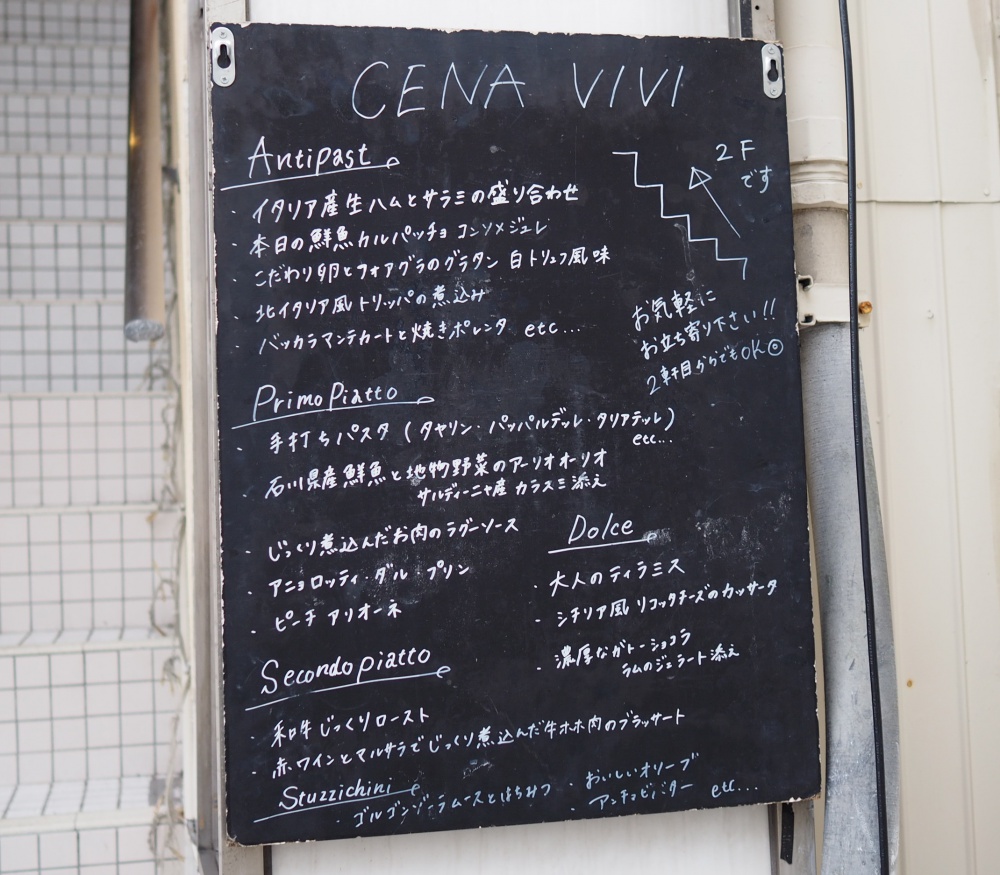 CENA VIVI
Antipast
2F
です
・イタリア産生ハムとサラミの盛り合わせ
・本日の鮮魚カルパッチョ コンソメジュレ
・こだわり卵とフォアグラのグラタン 白トリュフ風味
・北イタリア風トリッパの煮込み
・バッカラマンテカートと焼きポレンタ etc...
お気軽に
お立ち寄り下さい!!
2軒目からでもOK◎
PrimoPiatto
・手打ちパスタ (タヤリン・パッパルデッレ・タリアテッレ)
etc...
・石川県産鮮魚と地物野菜のアーリオオーリオ
サルディーニャ産 カラスミ添え
・じっくり煮込んだお肉のラグーソース
・アニョロッティ・ダル プリン
・ピーチ アリオーネ
Dolce
・大人のティラミス
・シチリア風 リコッタチーズのカッサータ
・濃厚なガトーショコラ
ラムのジェラート添え
Secondopiatto
・和牛じっくりロースト
・赤ワインとマルサラでじっくり煮込んだ牛ホホ肉のブラッサート
Stuzzichini
・ゴルゴンゾーラムースとはちみつ
・おいしいオリーブ
・アンチョビバター etc...